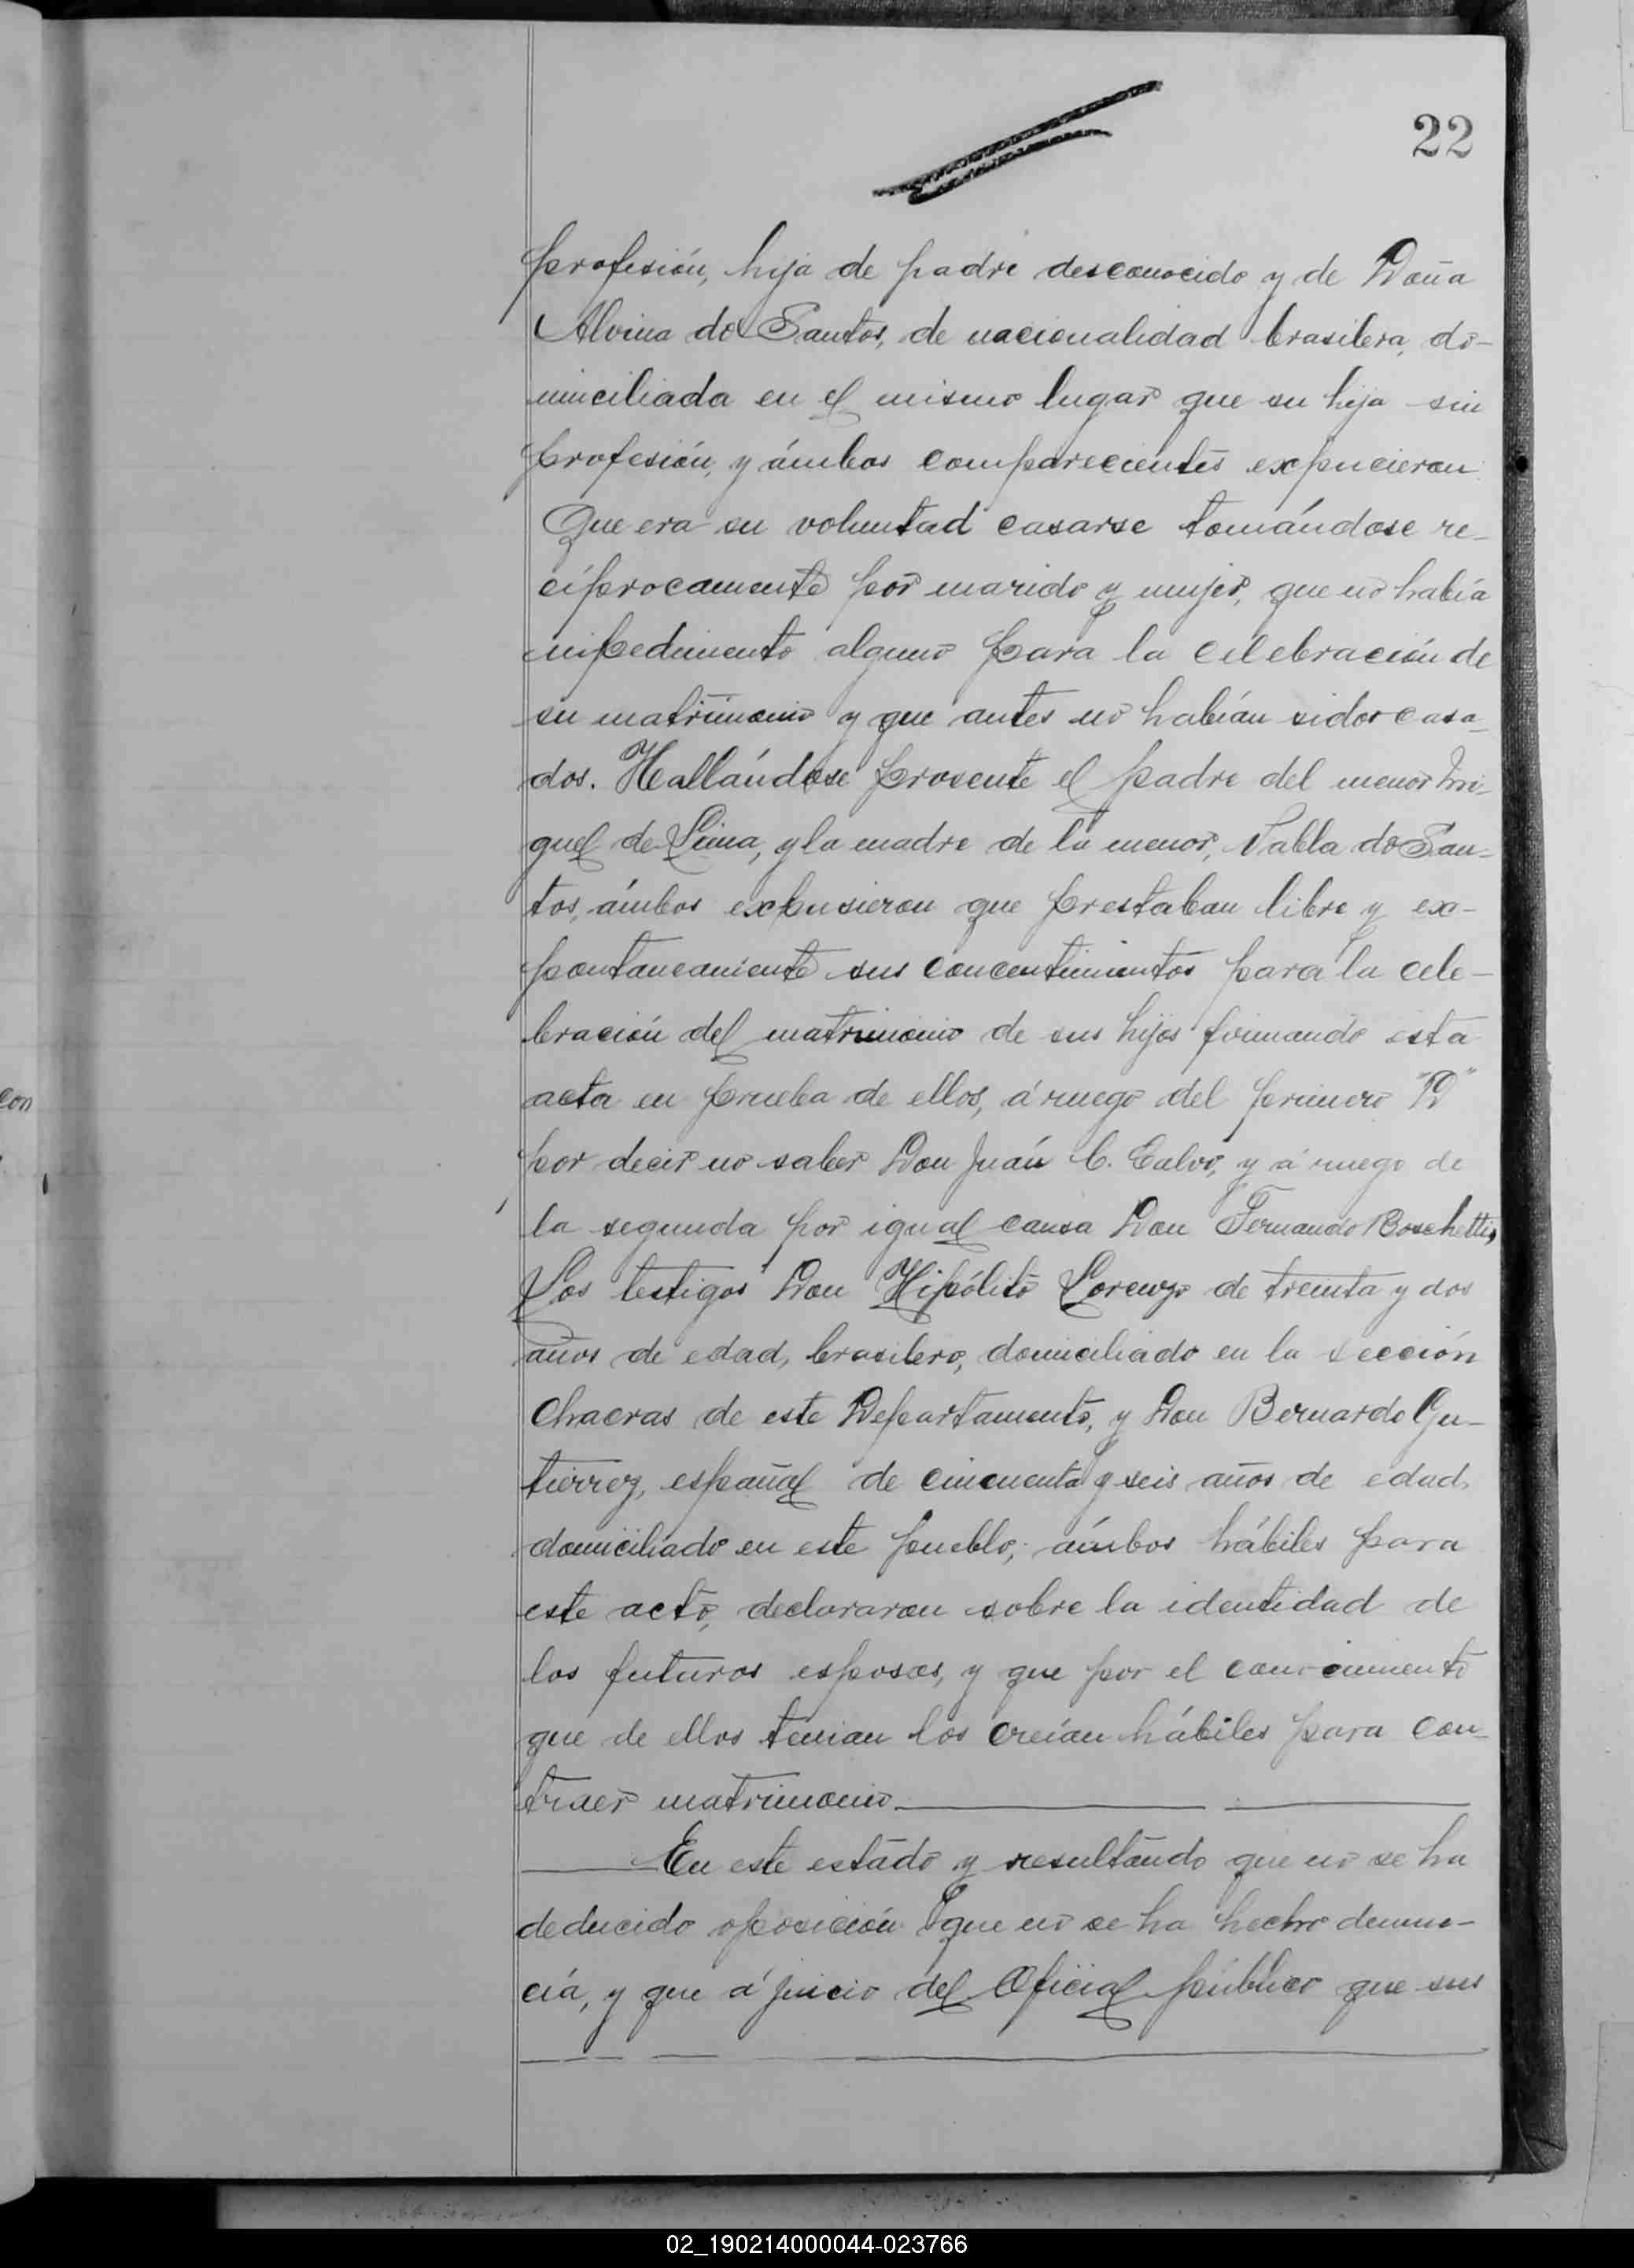 22
profesión, hija de padre desconocido y de Doña
Alvina do Santos, de nacionalidad brasilera, do-
miciliada en el mismo lugar que su hija sin
profesión, y ámbos comparecientes expucieron
Que era su voluntad casarse tomándose re-
cíprocamente por marido y mujer, que no había
impedimento alguno para la celebración de
su matrimonio y que antes no habían sidos casa-
dos. Hallándose presente el padre del menor Mi-
guel de Lima, y la madre de la menor, do San-
tos, ámbos expusieron que prestaban libre y ex-
pontaneamente sus concentimientos para la cele-
bración del matrimonio de sus hijos firmando esta
acta en prueba de ellos, á ruego del primero "D"
por decir no saber Don Juán C. Calvo, y á ruego de
la segunda por igual causa Don Fernando Boschetti,
Los testigos Don Hipólito Lorenzo de treinta y dos
años de edad, brasilero, domiciliado en la sección
Chacras de este Departamento, y Don Bernardo Gu-
tierrez, español de cincuenta y seis años de edad,
domiciliado en este pueblo; ámbos hábiles para
este acto, declararon sobre la identidad de
los futuros esposos, y que por el conocimiento
que de ellos tenian los creían hábiles para con-
traer matrimonio
En este estado y resultando que no se ha
deducido oposición que no se ha hecho denun-
cía, y que á juicio del Oficial público que sus
con
02_190214000044-023766